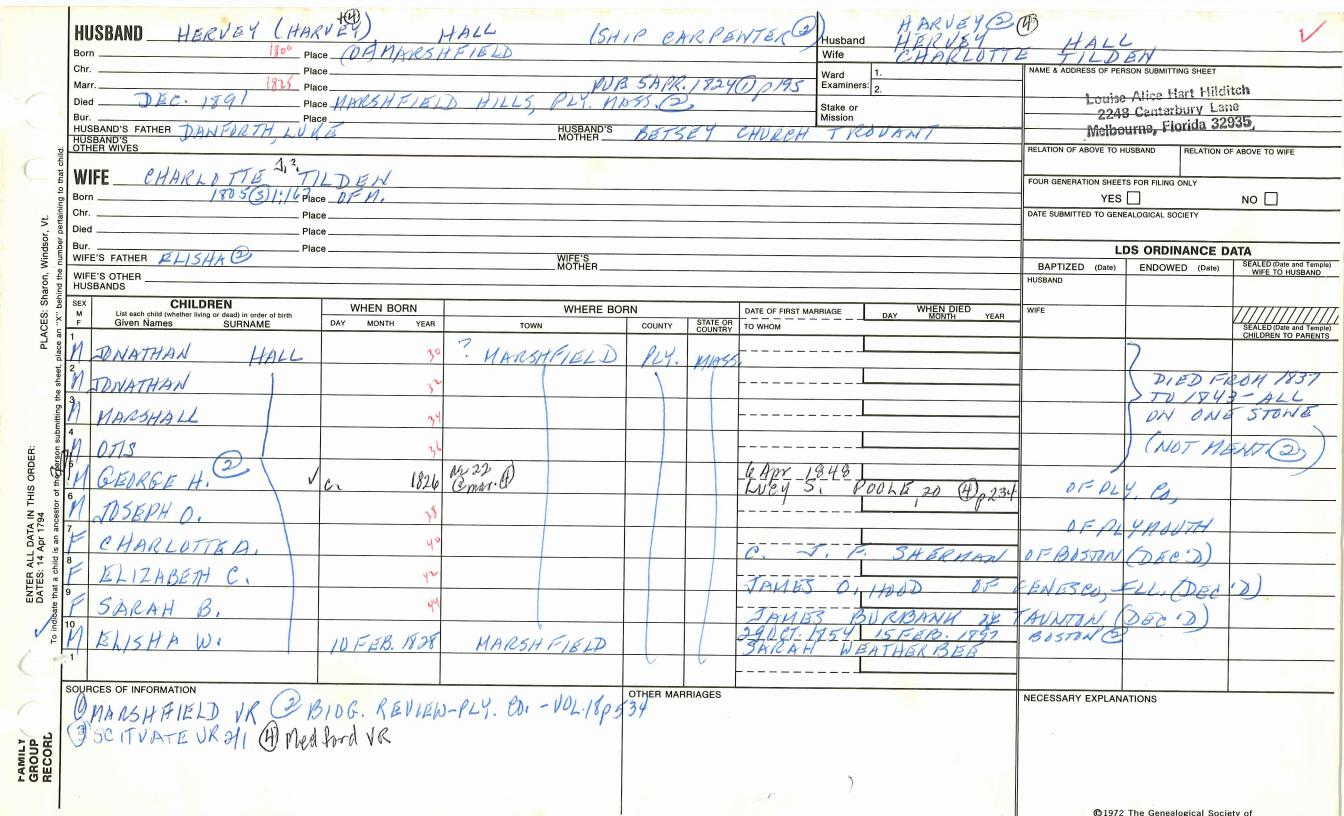 HUSBAND HERVEY (HARVEY) +④ HALL (SHIP CARPENTER ②)
Born 1800 Place (OF) MARSHFIELD
Chr. Place
Marr. 1825 Place PUB 5 APR. 1824 ① p195
Died DEC. 1891 Place MARSHFIELD HILLS, PLY. MASS. ②
Bur. Place
HUSBAND'S FATHER DANFORTH, LUKE HUSBAND'S MOTHER BETSEY CHURCH TROUANT
HUSBAND'S OTHER WIVES
HARVEY ② ④
Husband HERVEY HALL
Wife CHARLOTTE TILDEN
Ward Examiners: 1.
2.
Stake or Mission
NAME & ADDRESS OF PERSON SUBMITTING SHEET
Louise Alice Hart Hilditch
2248 Canterbury Lane
Melbourne, Florida 32935
RELATION OF ABOVE TO HUSBAND RELATION OF ABOVE TO WIFE
FOUR GENERATION SHEETS FOR FILING ONLY
YES NO
DATE SUBMITTED TO GENEALOGICAL SOCIETY
WIFE CHARLOTTE J,? TILDEN
Born 1805 ③ 1:162 Place OF M.
Chr. Place
Died Place
Bur. Place
WIFE'S FATHER ELISHA ② WIFE'S MOTHER
WIFE'S OTHER HUSBANDS
LDS ORDINANCE DATA
BAPTIZED (Date) ENDOWED (Date) SEALED (Date and Temple) WIFE TO HUSBAND
HUSBAND
WIFE
SEALED (Date and Temple) CHILDREN TO PARENTS
SEX M F
CHILDREN
List each child (whether living or dead) in order of birth
Given Names SURNAME
WHEN BORN
DAY MONTH YEAR
WHERE BORN
TOWN COUNTY STATE OR COUNTRY
DATE OF FIRST MARRIAGE
TO WHOM
WHEN DIED
DAY MONTH YEAR
1 M JONATHAN HALL 30 ? MARSHFIELD PLY. MASS.
2 M JONATHAN 32
3 M MARSHALL 34
4 M OTIS 36
DIED FROM 1837
TO 1843 - ALL
ON ONE STONE
(NOT MENT ②)
5 M GEORGE H. ② ✓ c. 1826 6 Apr 1848
LUCY S. POOLE, 20 ④ p234 OF PLY. CO,
6 M JOSEPH O. 38 OF PLYMOUTH
7 F CHARLOTTE A. 40 C. J. F. SHERMAN OF BOSTON (DEC'D)
8 F ELIZABETH C. 42 JAMES O. HOOD OF GENESCO, ILL. (DEC'D)
9 F SARAH B. 44 JAMES BURBANK OF TAUNTON (DEC'D)
10 M ELISHA W. 10 FEB. 1828 MARSHFIELD 29 OCT. 1854 15 FEB. 1897 BOSTON ②
SARAH WEATHERBEE
1
SOURCES OF INFORMATION
① MARSHFIELD VR ② BIOG. REVIEW-PLY. CO. - VOL. 18 p534
③ SCITUATE VR 2/1 ④ Medford VR
OTHER MARRIAGES
NECESSARY EXPLANATIONS
©1972 The Genealogical Society of
ENTER ALL DATA IN THIS ORDER:
DATES: 14 Apr 1794
PLACES: Sharon, Windsor, Vt.
To indicate that a child is an ancestor of the person submitting the sheet, place an "X" behind the number pertaining to that child.
FAMILY
GROUP
RECORD